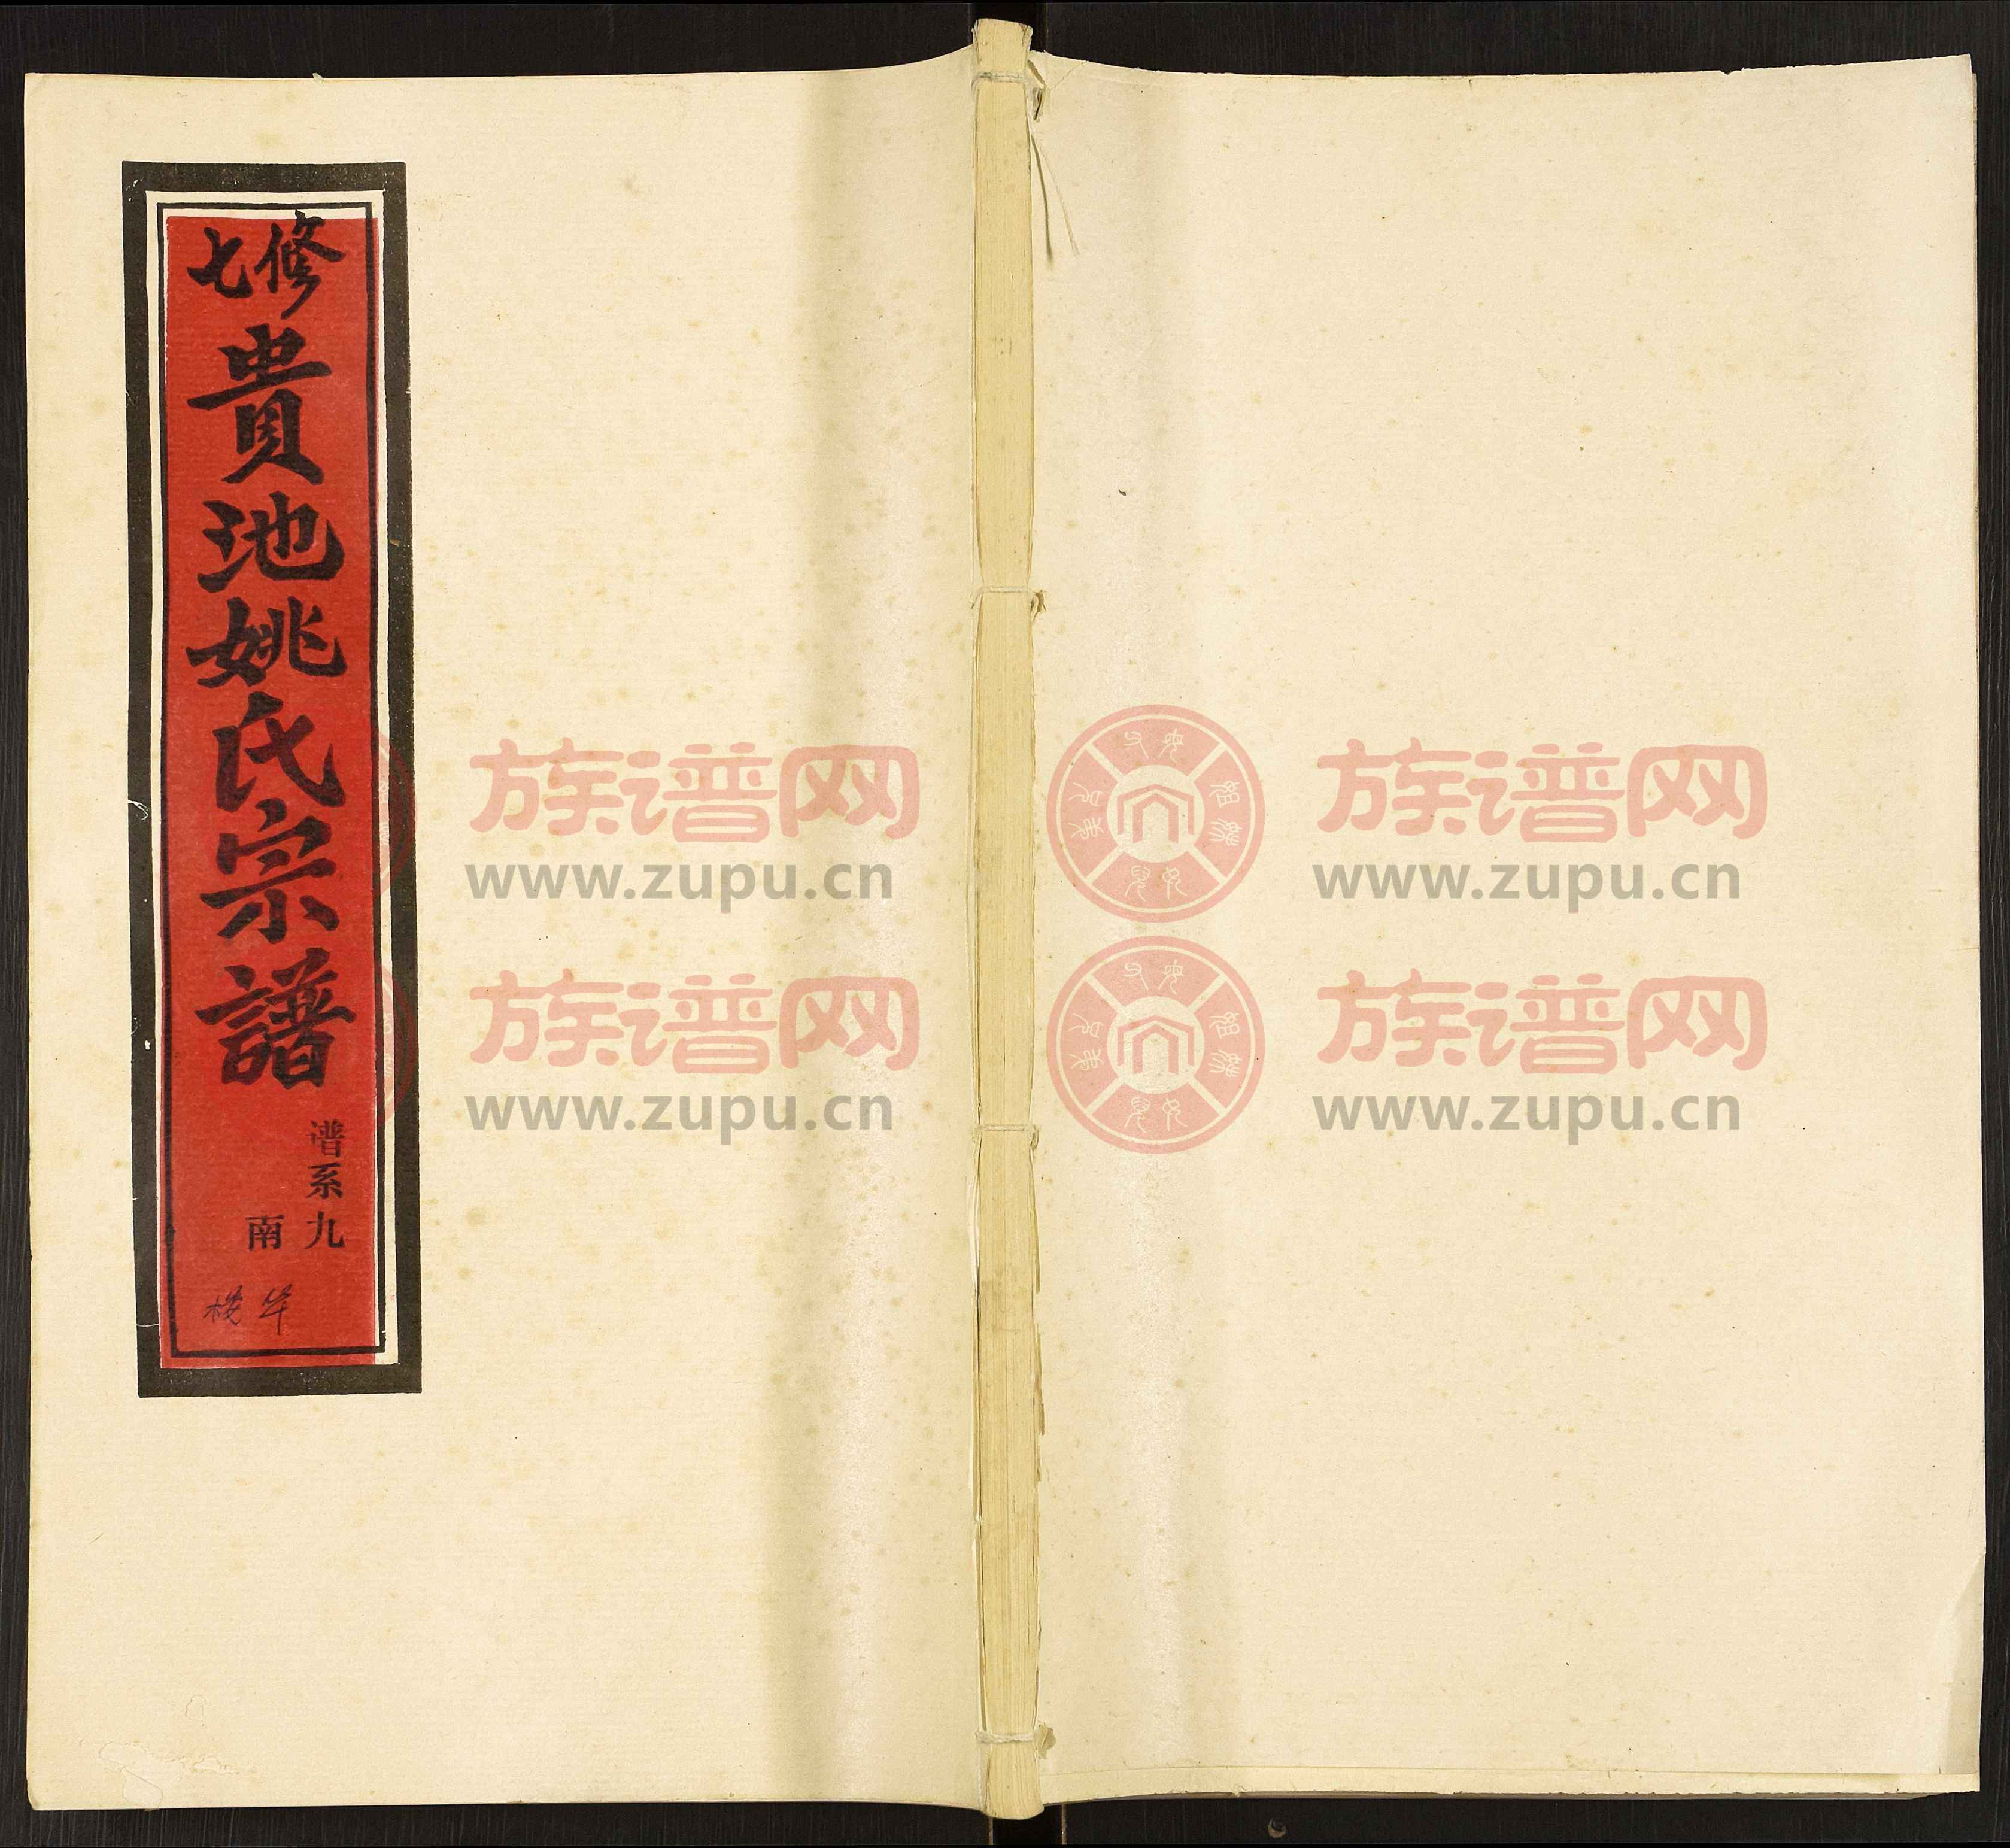 七修
貴池姚氏宗譜
谱系九
南
族谱网
www.zupu.cn
族谱网
www.zupu.cn
族谱网
www.zupu.cn
族谱网
www.zupu.cn